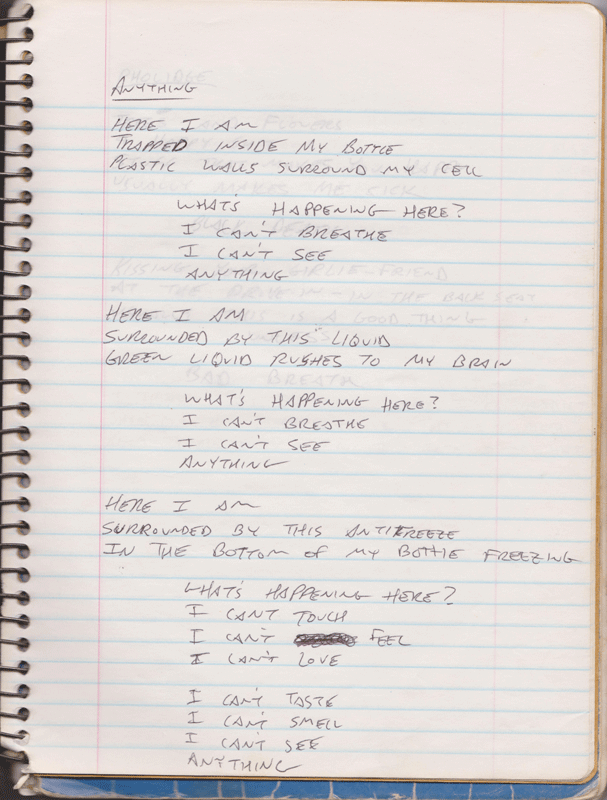 ANYTHING
HERE I AM
TRAPPED INSIDE MY BOTTLE
PLASTIC WALLS SURROUND MY CELL
WHATS HAPPENING HERE?
I CAN'T BREATHE
I CAN'T SEE
ANYTHING
HERE I AM
SURROUNDED BY THIS LIQUID
GREEN LIQUID RUSHES TO MY BRAIN
WHAT'S HAPPENING HERE?
I CAN'T BREATHE
I CAN'T SEE
ANYTHING
HERE I AM
SURROUNDED BY THIS ANTIFREEZE
IN THE BOTTOM of MY BOTTLE FREEZING
WHAT'S HAPPENING HERE?
I CAN'T TOUCH
I CAN'T FEEL
I CAN'T LOVE
I CAN'T TASTE
I CAN'T SMELL
I CAN'T SEE
ANYTHING